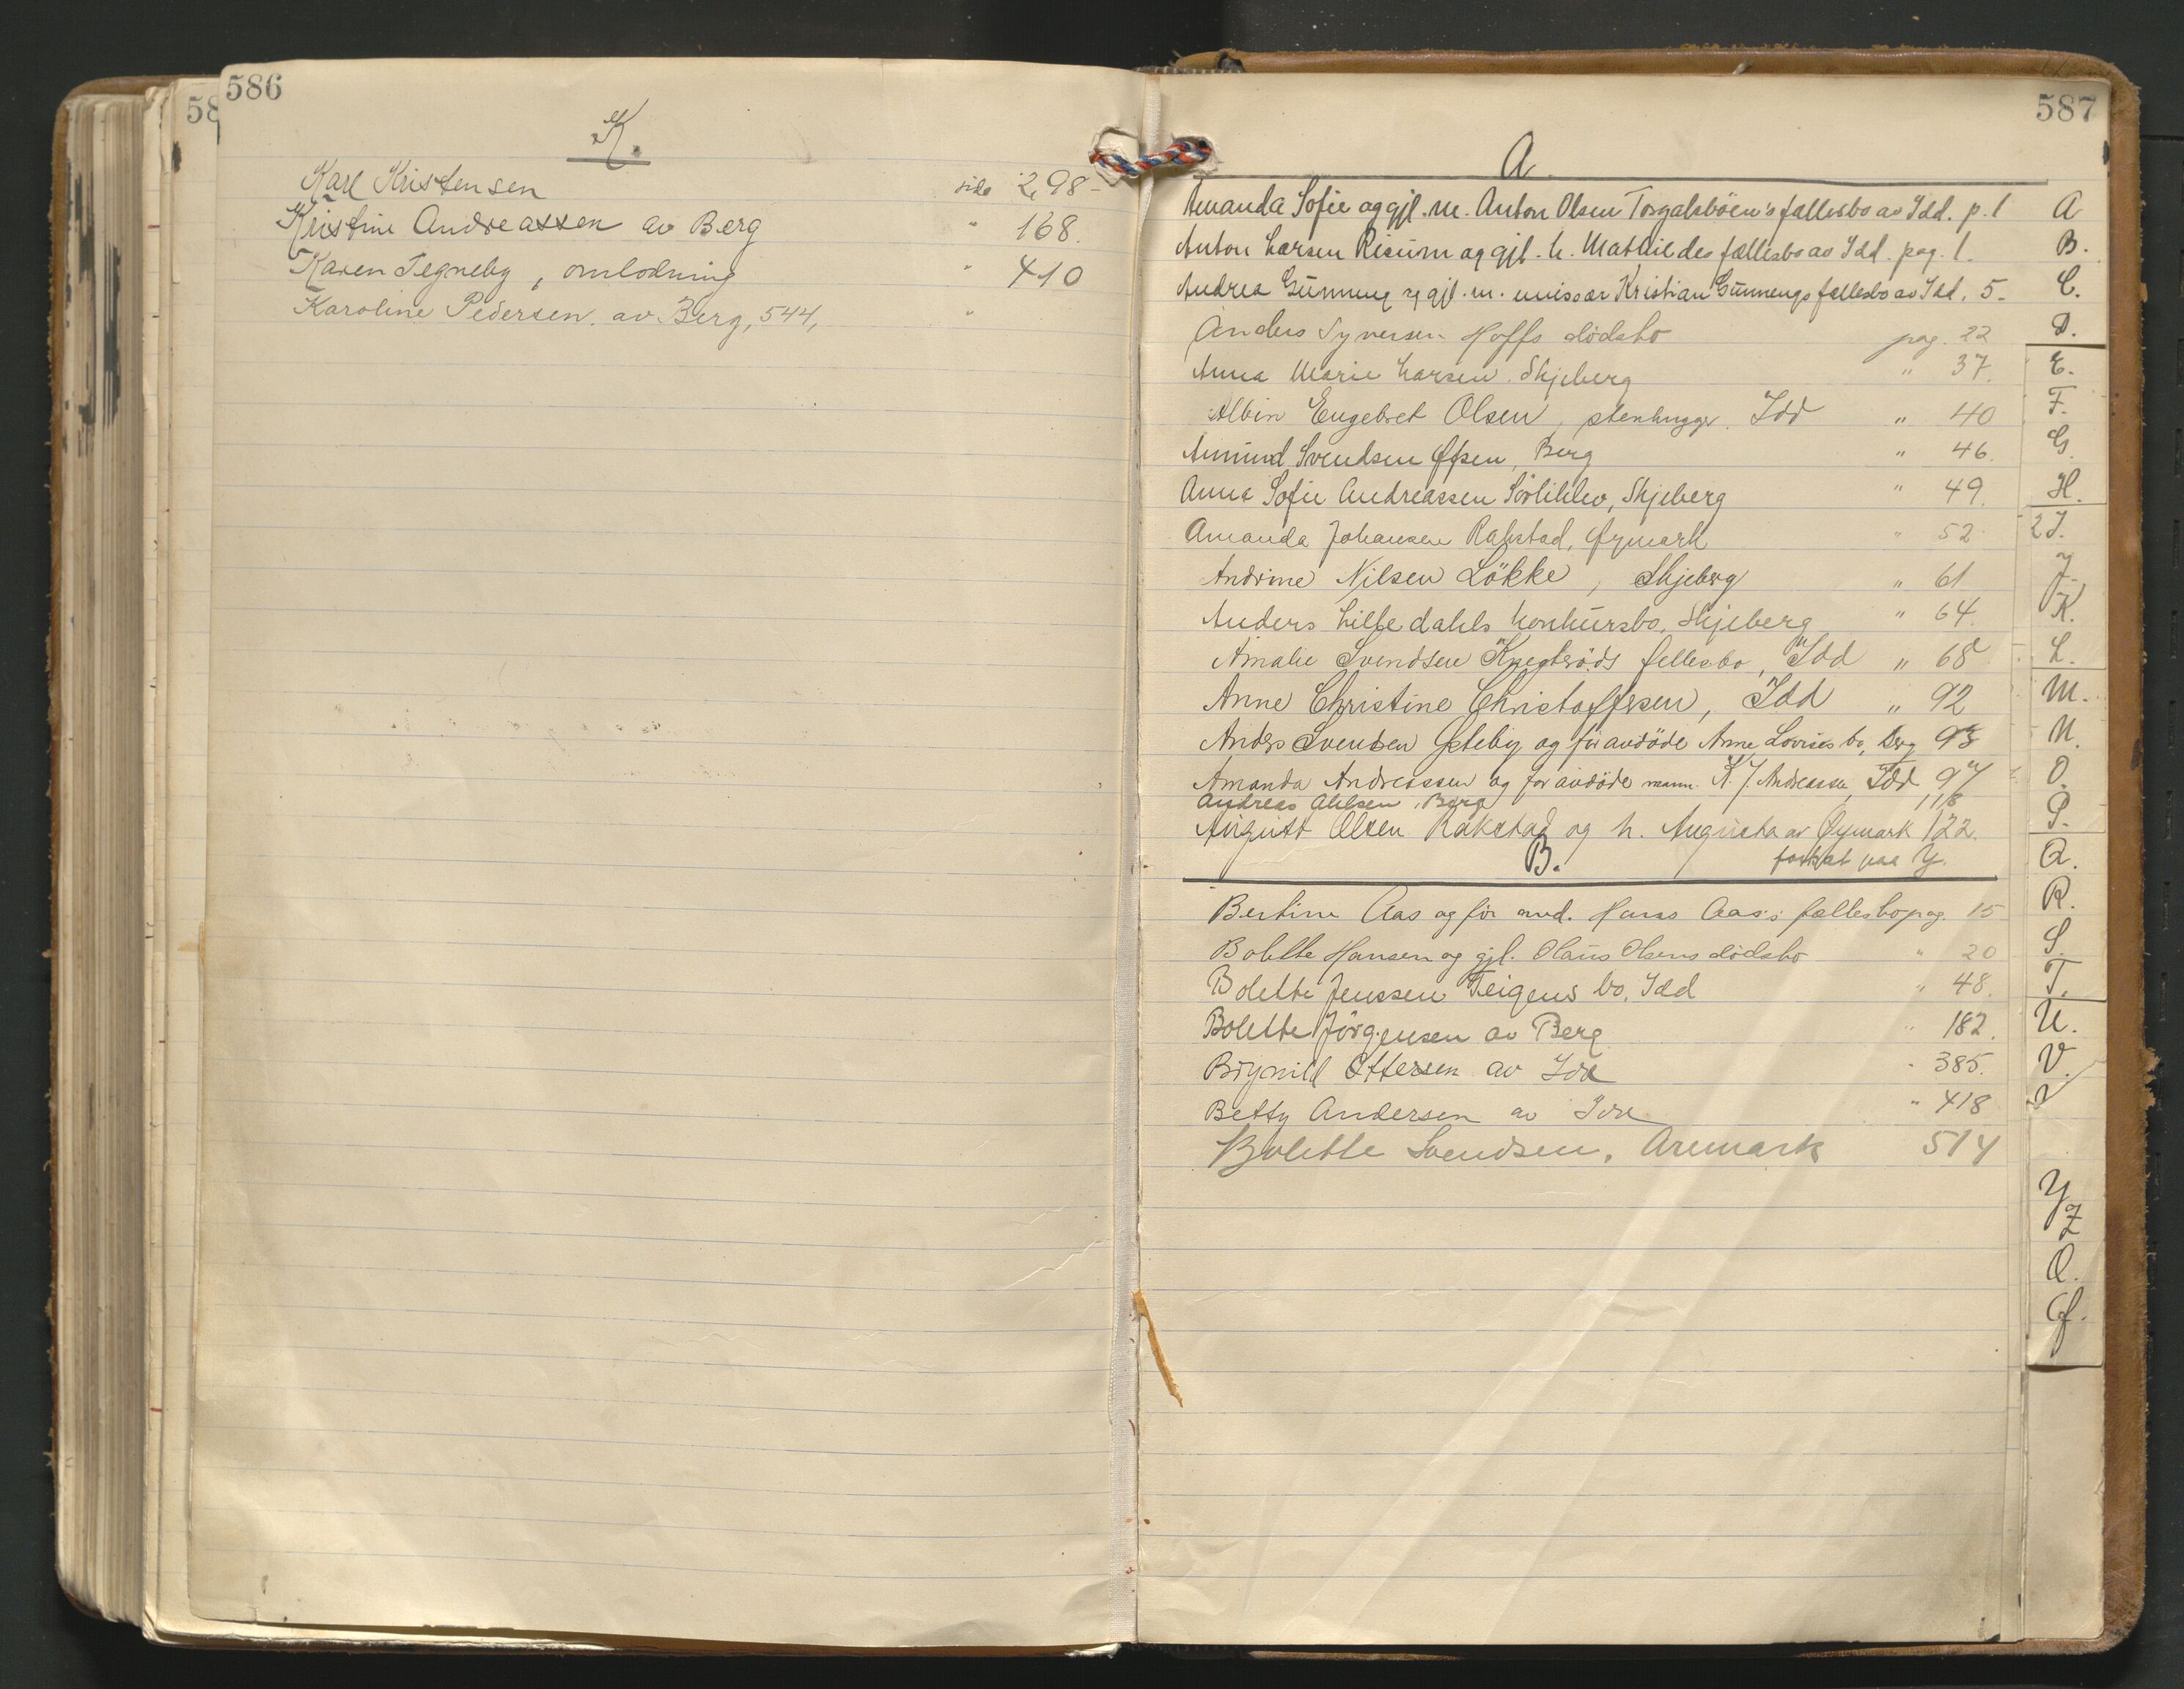 586
K.
Karl Kristensen side 298-
Kristine Andreassen av Berg " 168.
Karen Tegneby, omlodning " 410
Karoline Pedersen. av Berg, 544, "
58
587
A
Amanda Sofie og gjl. m. Anton Olsen Torgalsböen's fællesbo av Idd. p. 1
Anton Larsen Risum og gjl. h. Mathildes fællesbo av Idd. pag. 1.
Andrea Gunneng og gjl. m. Kristian Gunnengs fællesbo av Idd. 5.
Anders Syversen Hoffs dödsbo pag. 22
Anna Marie Larsen. Skjeberg " 37.
Albin Engebret Olsen, stenhugger. Idd " 40
Amund Svendsen Øssen, Berg " 46.
Anna Sofie Andreassen Sörliklev, Skjeberg " 49.
Amanda Johansen Rakstad, Øymark " 52
Andrine Nilsen Løkke, Skjeberg " 61
Anders Lilledahls konkursbo, Skjeberg " 64.
Amalie Svendsen fellesbo, Idd " 68
Anne Christine Christoffersen, Idd " 92
Anders Svendsen Østeby og før avdöde Anne Lovises bo, Berg 93
Amanda Andreassen og for avdöde mann K. J. Andreassen, Idd " 97
Andreas Ahlsen, Berg 118
August Olsen Rakstad og h. Augusta av Øymark 122.
B.
fortsat paa Y.
Bertine Aas og før avd. Hans Aas's fællesbo pag. 15
Bolette Hansen og gjl. Olaus Olsens dödsbo " 20
Bolette Jenssen Teigens bo, Idd " 48.
Bolette Jörgensen av Berg " 182.
Brynild Ottersen av Idd " 385.
Betty Andersen av Idd " 418
Bolette Svendsen, Aremark 514
A
B.
C.
D.
E.
F.
G.
H.
I.
J.
K.
L.
M.
N.
O.
P.
Q.
R.
S.
T.
U.
V.
Y
Z
Ø.